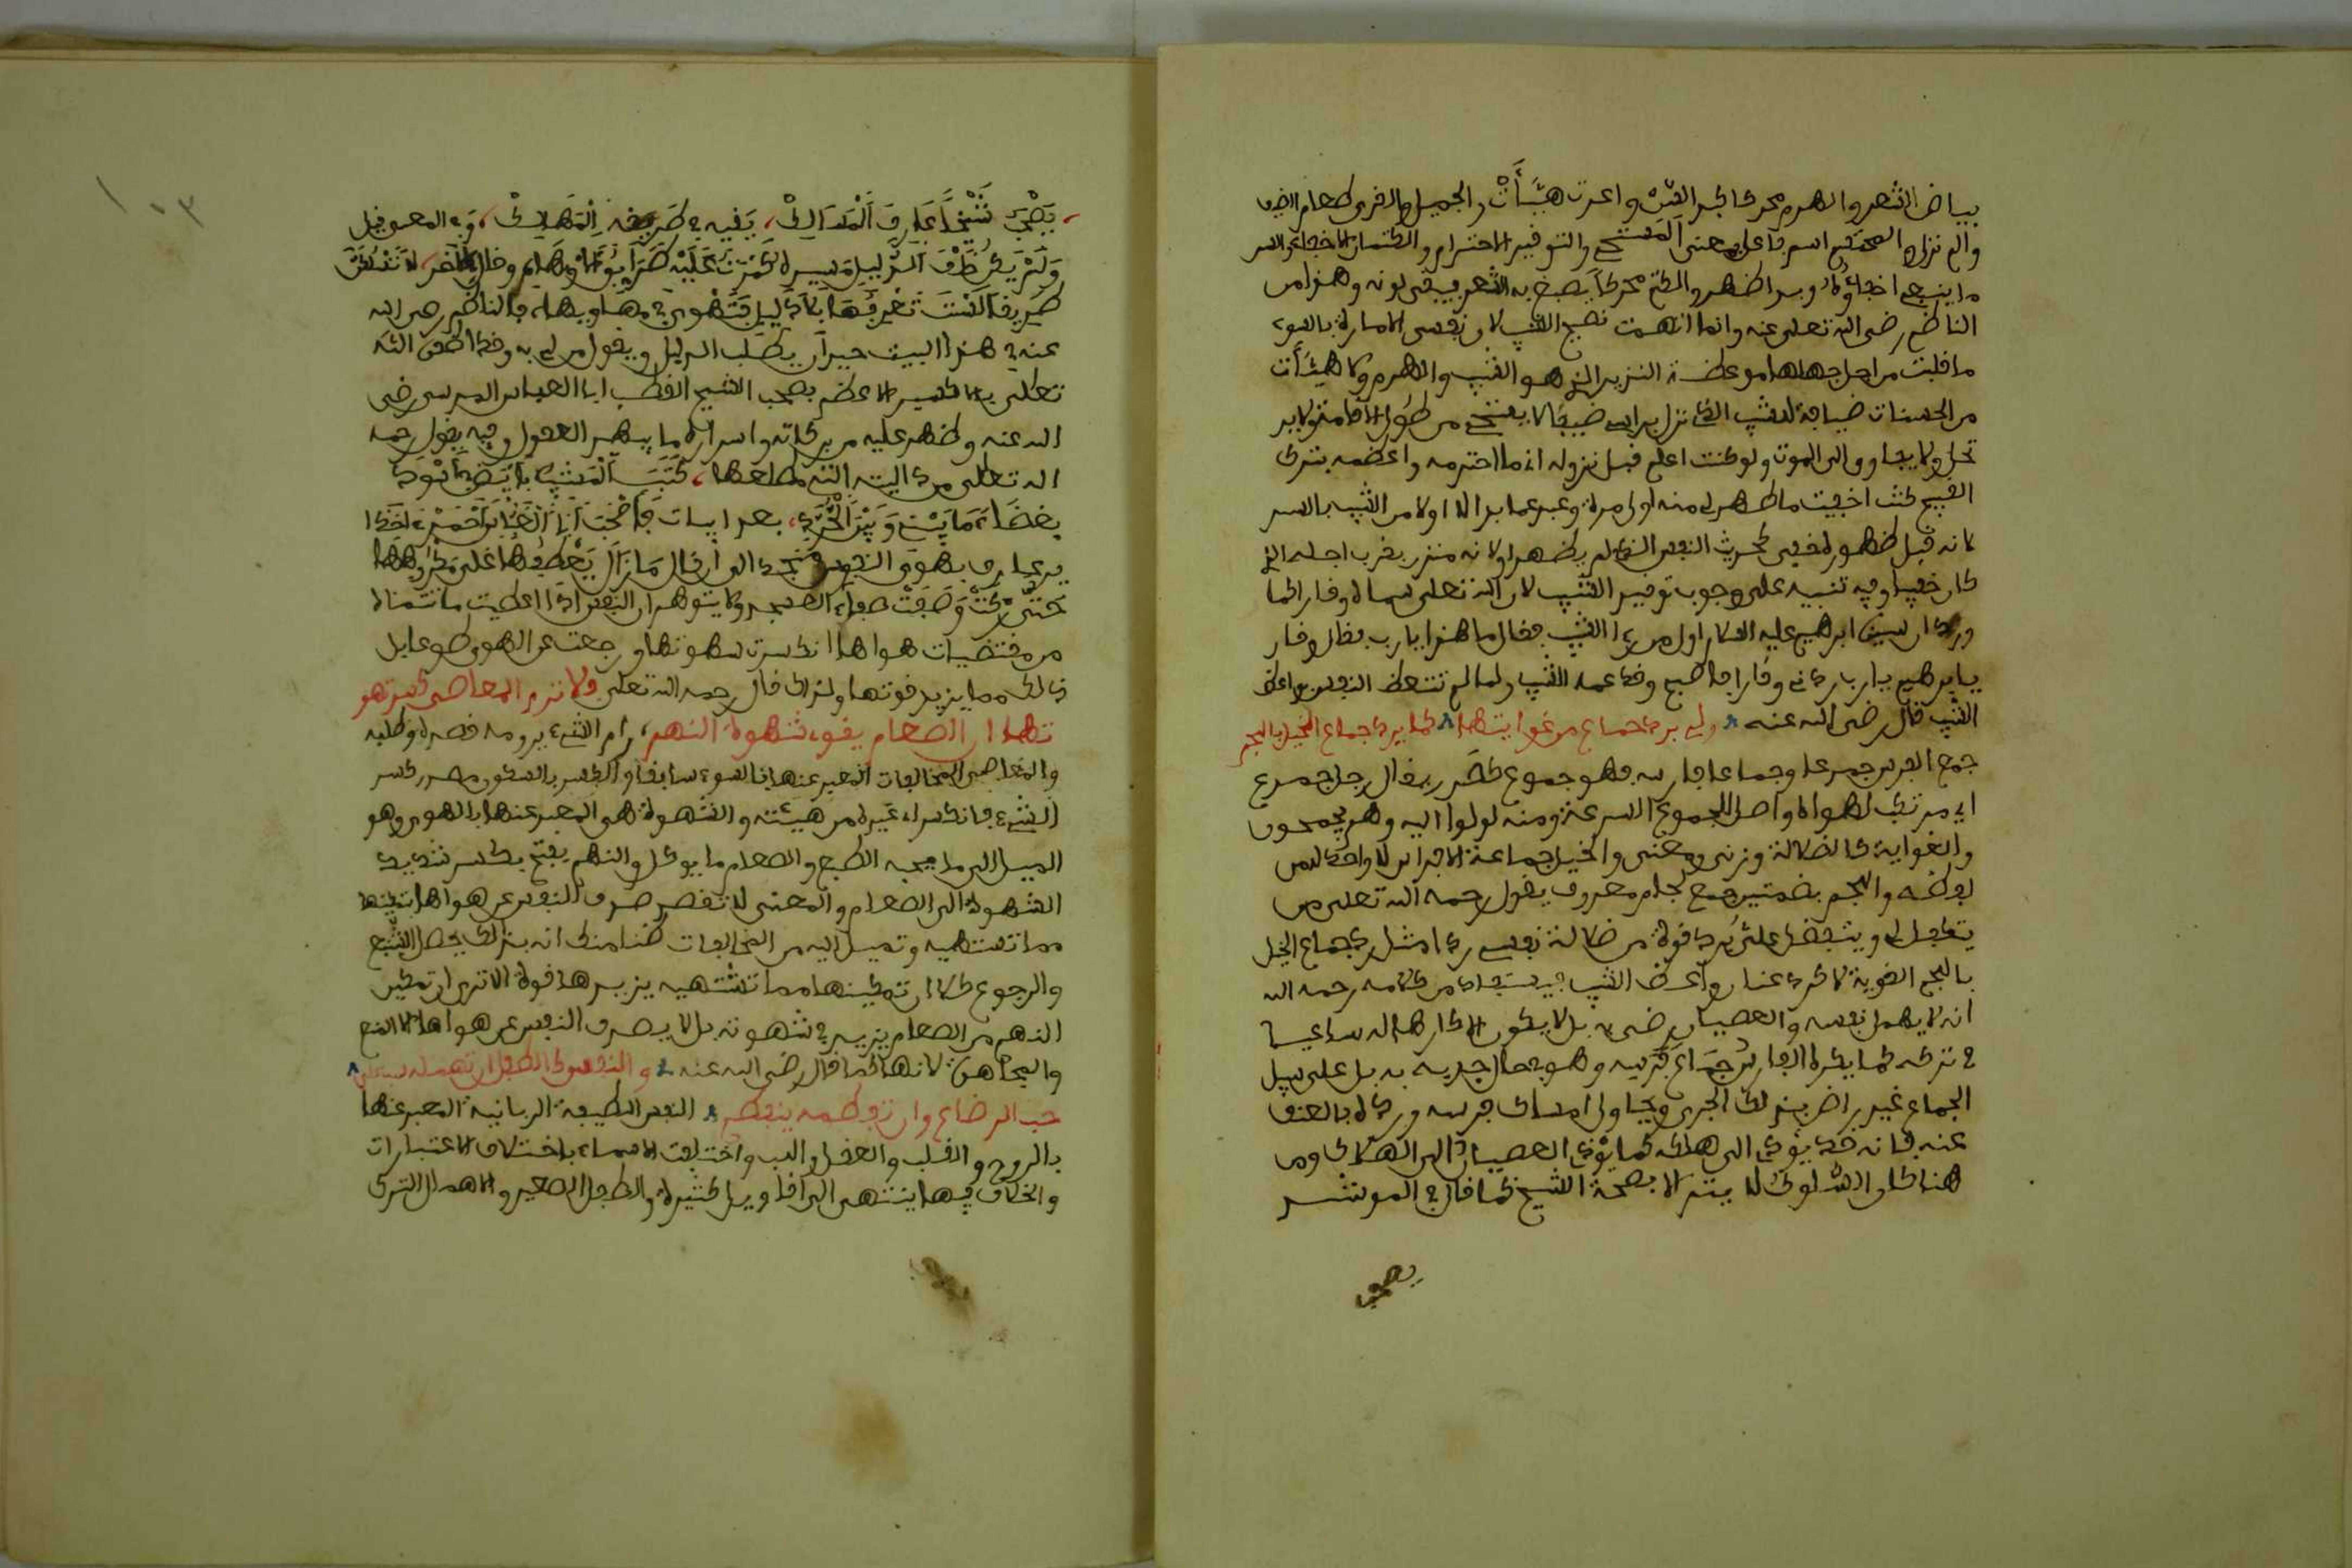 بياض الشعر والهرم محركا كبر السن واعدت هيأت والجميل والقرى طعام الضيف
والم نزل والمحتشم اسم فاعل بمعنى المستحي والتوقير الاحترام والكتمان الاخفاء والسر
ما ينبغي اخفاؤه وبدا ظهر والكتم محركا يصبغ به الشعر فيبقى لونه وهذا من
الناظم رضي الله تعالى عنه وانما اتهمت نصيح الشيب لان نفسي الامارة بالسوء
ما قبلت من اجل جهلها موعظة النذير الذي هو الشيب والهرم ولا هيأت
من الحسنات ضيافة للشيب الذي نزل براسي ضيفا لا يستحي من طول الاقامة ولا بد
تحل ولا يجاوز الى الموت ولو كنت اعلم قبل نزوله اني ما احترمه واعظمه بترك
القبيح كنت اخفيت ما ظهر لي منه اول مرة وعبر عما بدا له اولا من الشيب بالسر
لانه قبل ظهوره خفي كحديث النفس الذي لم يظهر او لانه منذر بقرب اجله الذي
كان خفيا وفيه تنبيه على وجوب توقير الشيب لان الله تعالى سماه وقارا كما
ورد ان سيدنا ابرهيم عليه السلام اول من رءا الشيب فقال ما هذا يا رب فقال وقار
يا ابرهيم يا رب زدني وقارا فاصبح وقد عمه الشيب ولما لم تتعظ النفس بواعظ
الشيب قال رضي الله عنه من لي برد جماح من غوايتها كما يرد جماح الخيل باللجم
جمح الفرس جمحا وجماحا فارسه فهو جموح غلبه يقال رجل جموح
اي مرتكب لهواه واصل الجموح السرعة ومنه لولوا اليه وهم يجمحون
والغواية كالضلالة وزنى ومعنى والخيل جماعة الافراس لا واحد له من
لفظه واللجم بضمتين جمع لجام معروف يقول رحمه الله تعالى من
يتكفل لي ويتفضل علي برد قوة من ضلالة نفسي ردا مثل رد جماح الخيل
باللجم القوية لا كرد عنان واعظ الشيب فيستفاد من كلامه رحمه الله
انه لا يهمل نفسه والعصيان رضى به بل لا يكون الا كارها له ساعيا
في تركه كما يكره الفارس جماح فرسه وهو في حال جريه به بل على سبيل
الجماح غير راض بذلك الجري ويحاول امساك فرسه ورده بالعنف
عنه فانه قد يؤدي الى هلاكه كما يؤدي العصيان الى الهلاك ومن
هنا كان السلوك لا يتم الا بصحبة الشيخ كما قال في المرشد
يصحب
يصحب شيخا عارف المسالك، يقيه في طريقه المهالك، وفي المعنى قيل
ولم يكن خلف الدليل مسيره كثرت عليه طرايق الاوهام وقال الاخر، لا تسلكن
طريقا لست تعرفها بلا دليل فتهوي في مهاويها، فالناظم رضي الله
عنه في هذا البيت حيران يطلب الدليل ويقول من لي به وقد اظفره الله
تعالى بالاكسير الاعظم بصحبة الشيخ القطب ابا العباس المرسي رضي
الله عنه وظهر عليه من بركاته واسراره ما يبهر العقول وفيه يقول رحمه
الله تعالى من داليته التي مطلعها، كتب المشيب بابيض في اسود
بغضاء ما بيني وبين الخرد، بعد ابيات
حتى زكت وصفت صفاء العسجد ولا يتوهم ان النفس اذا اعطيت ما تتمناه
من مقتضيات هواها انكسرت شهوتها ورجعت عن الهوى طوعا بل
ذلك مما يزيد قوتها ولذا قال رحمه الله تعالى فلا ترم بالمعاصي كسر شهو
تها ان الطعام يقوي شهوة النهم، رام الشيء يرومه قصده وطلبه
والمعاصي المخالفات المعبر عنها بالسوء سابقا والكسر بالسكون مصدر كسر
الشيء فانكسر اي غيره من هيئته والشهوة هي المعبر عنها بالهوى وهو
الميل الى ما يحبه الطبع والطعام ما يوكل والنهم بفتح فكسر شديد
الشهوة الى الطعام والمعنى لا تقصد صرف النفس عن هواها بتمكينها
مما تشتهيه وتميل اليه من المخالفات ظنا منك انه بذلك يحصل الشبع
والرجوع كلا ان تمكينها مما تشتهيه يزيدها قوة الا ترى ان تمكين
النهم من الطعام يزيد في شهوته بل لا يصرف النفس عن هواها الا المنع
والمجاهدة لانها كما قال رضي الله عنه والنفس كالطفل ان تهمله شب على
حب الرضاع وان تفطمه ينفطم النفس اللطيفة الربانية المعبر عنها
بالروح والقلب والعقل واللب واختلفت الاسماء باختلاف الاعتبارات
والخلاف فيها ينتهي الى اقاويل كثيرة والطفل الصغير والاهمال الترك
١٠٣